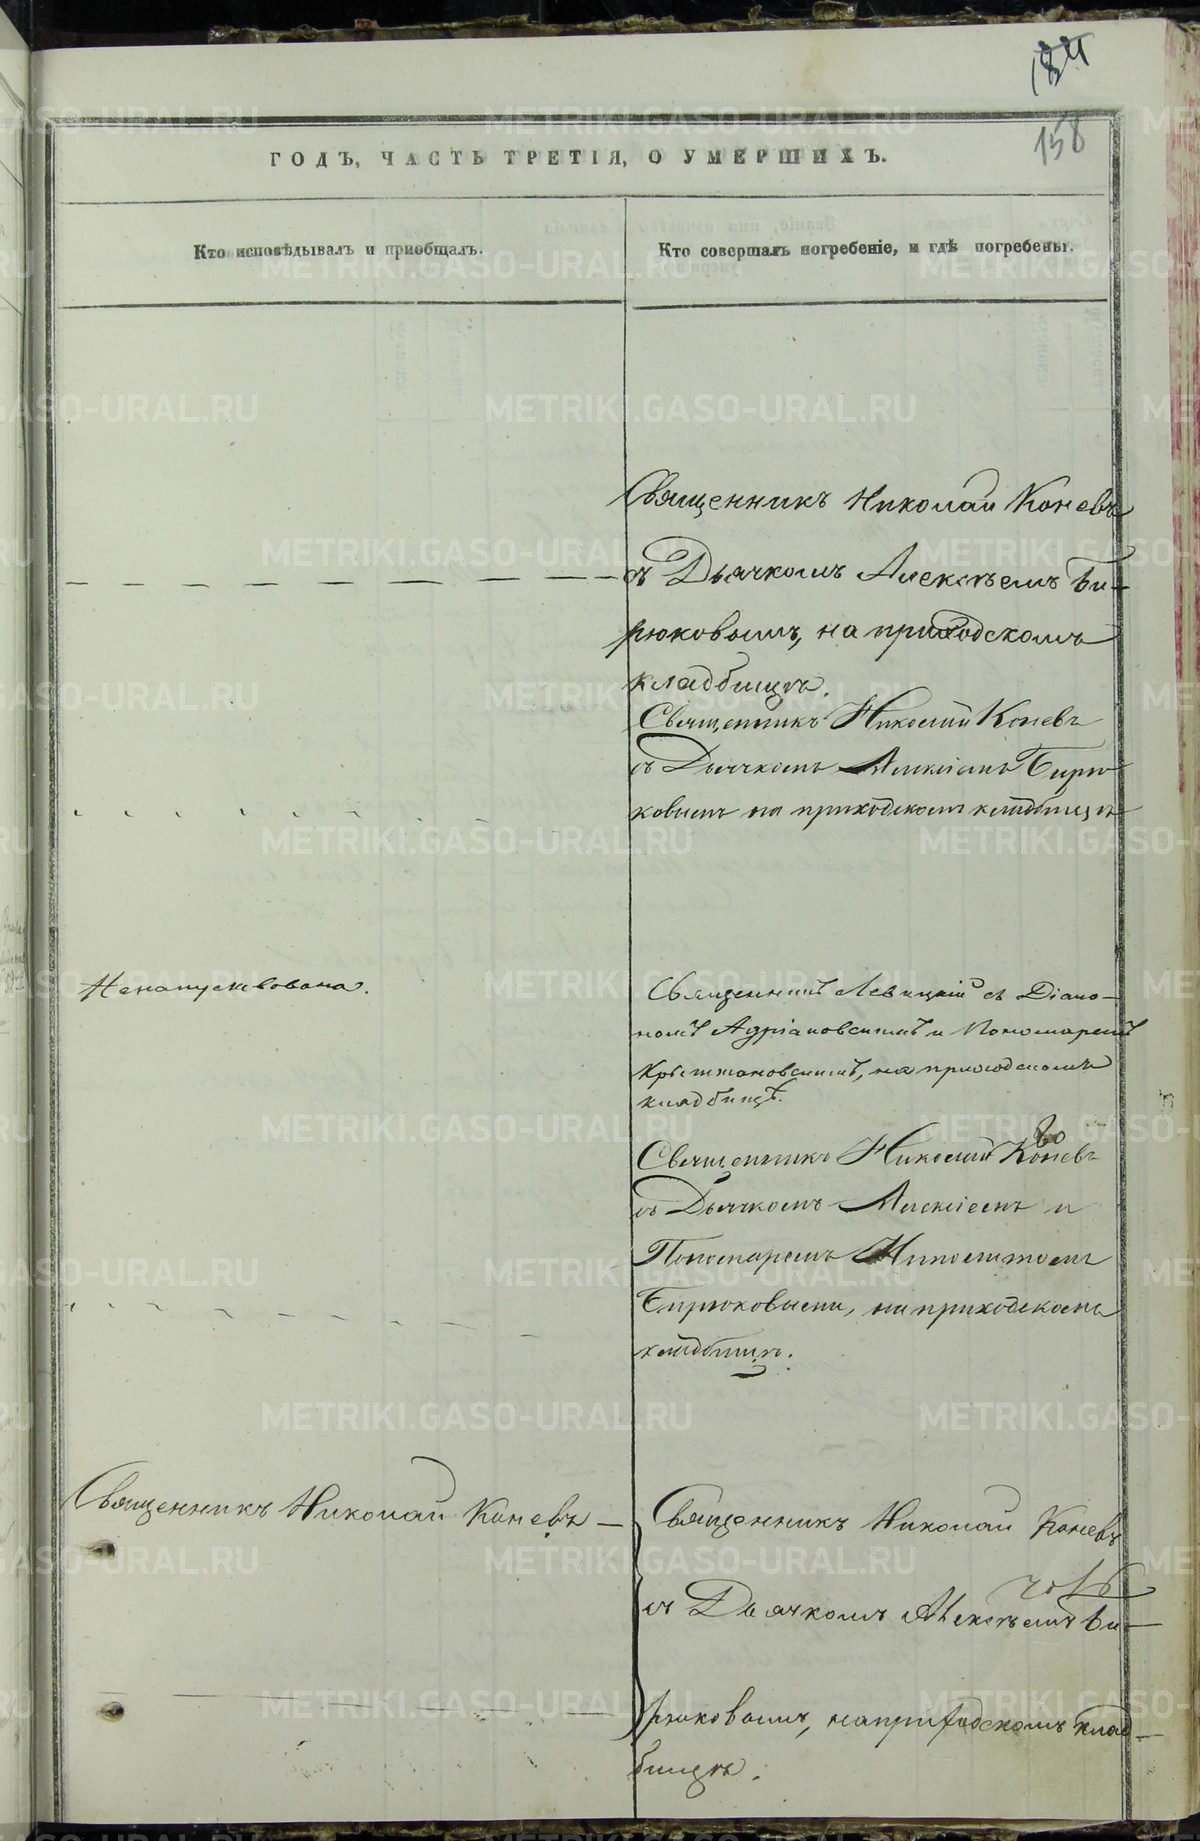 184
158
ГОДЪ, ЧАСТЬ ТРЕТІЯ, О УМЕРШИХЪ.
Кто исповѣдывалъ и пріобщалъ.
Кто совершалъ погребеніе, и гдѣ погребены.
Священникъ Николай Коневъ
съ Дьячкомъ Алексѣемъ Би-
рюковымъ, на приходскомъ
кладбищѣ.
Священникъ Николай Коневъ
съ Дьячкомъ Алексіемъ Бирю
ковымъ на приходскомъ кладбищѣ
Ненапутствована.
Священникъ Левицкій съ Діако-
номъ Адріановскимъ и Пономаремъ
Крыжановскимъ, на приходскомъ
кладбищѣ.
Священникъ Николай Коневъ
съ Дьячкомъ Алексіемъ и
Пономаремъ Ипполитомъ
Бирюковыми, на приходскомъ
кладбищѣ.
Священникъ Николай Коневъ —
Священникъ Николай Коневъ
съ Дьячкомъ Алексѣемъ Би-
рюковымъ, на приходскомъ клад-
бищѣ.
METRIKI.GASO-URAL.RU